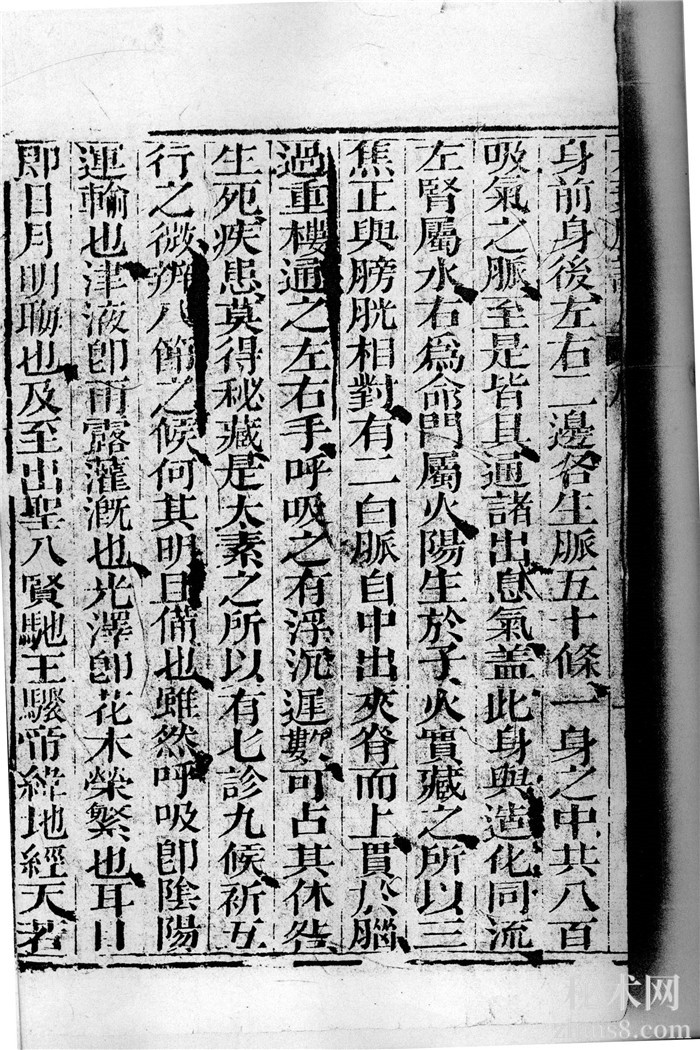 身前身後左右二邊各生脈五十條一身之中共八百
吸氣之脈至是皆具通諸出息氣蓋此身與造化同流
左腎屬水右爲命門屬火陽生於子火實藏之所以三
焦正與膀胱相對有二白脈自中出夾脊而上貫於腦
過重樓通之左右手呼吸之有浮沉遲數可占其休咎
生死疾患莫得秘藏是太素之所以有七診九候祈互
行之微辨八節之候何其明且備也雖然呼吸卽陰陽
運輸也津液卽雨露灌漑也光澤卽花木榮繁也耳目
即日月明也及至出聖入賢馳王驟帝緯地經天若
术网
8.com